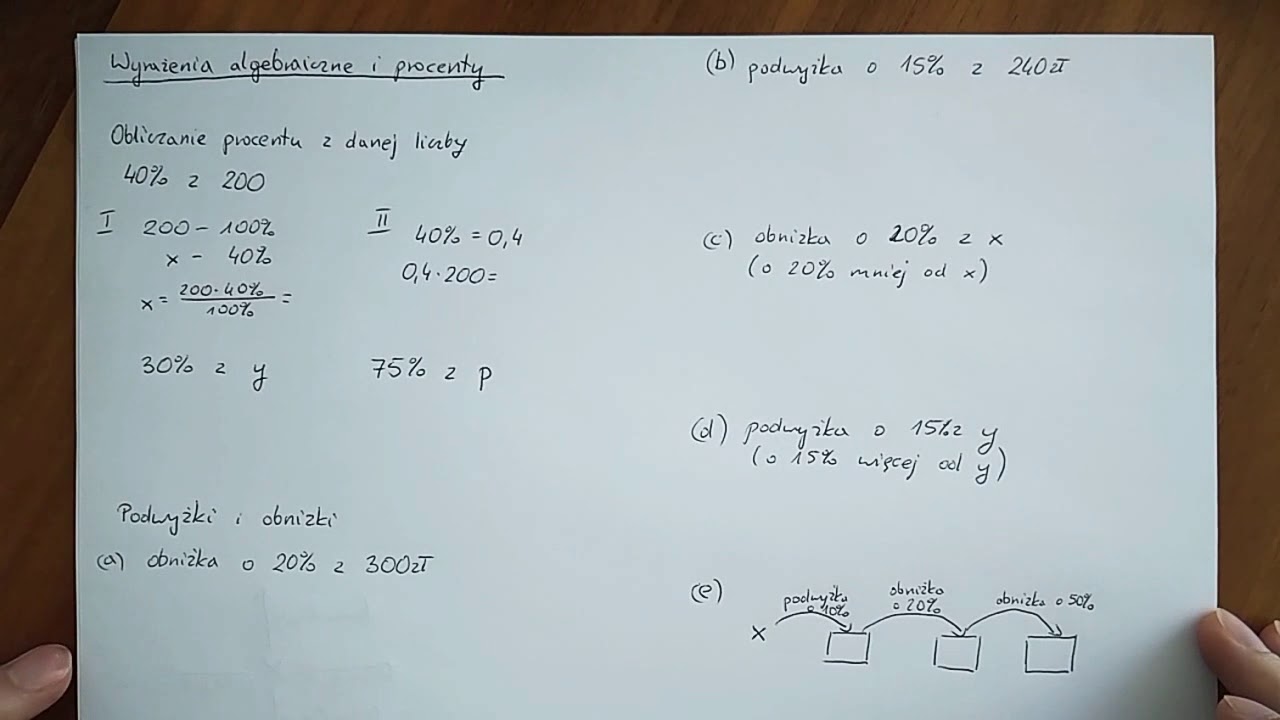 Wyrażenia algebraiczne i procenty
Obliczanie procentu z danej liczby
40% z 200
I 200 - 100%
x - 40%
x = 200·40%/100% =
II 40% = 0,4
0,4·200=
30% z y
75% z p
Podwyżki i obniżki
(a) obniżka o 20% z 300zł
(b) podwyżka o 15% z 240zł
(c) obniżka o 20% z x
(o 20% mniej od x)
(d) podwyżka o 15% z y
(o 15% więcej od y)
(e)
podwyżka
o 10%
obniżka
o 20%
obniżka o 50%
x